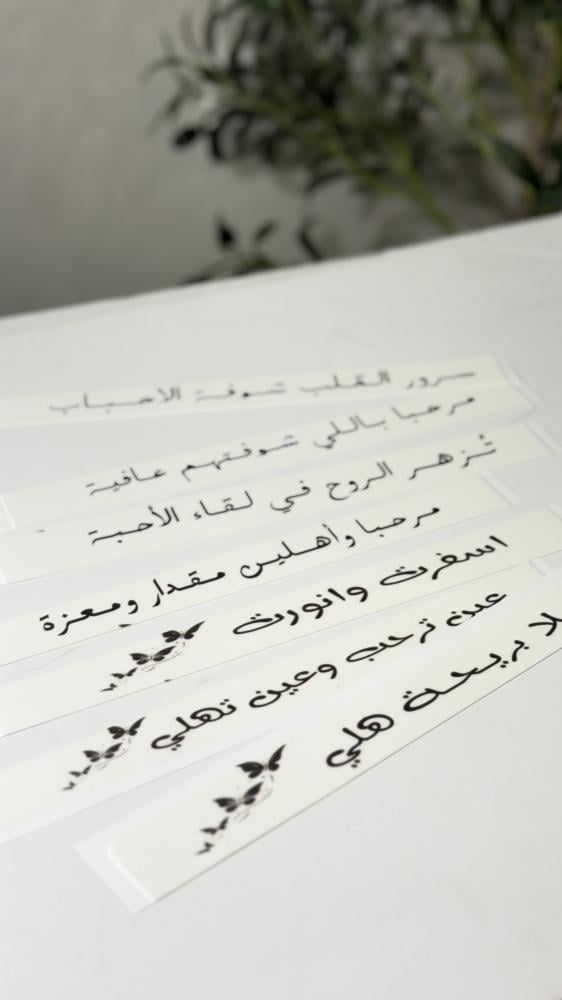 سرور القلب شوفة الاحباب
مرحبا باللي شوفتهم عافية
تُزهر الروح في لقاء الأحبة
مرحبا وأهلين مقدار ومعزة
اسفرت وانورت
عين ترحب وعين تهلي
لا بريحة هلي